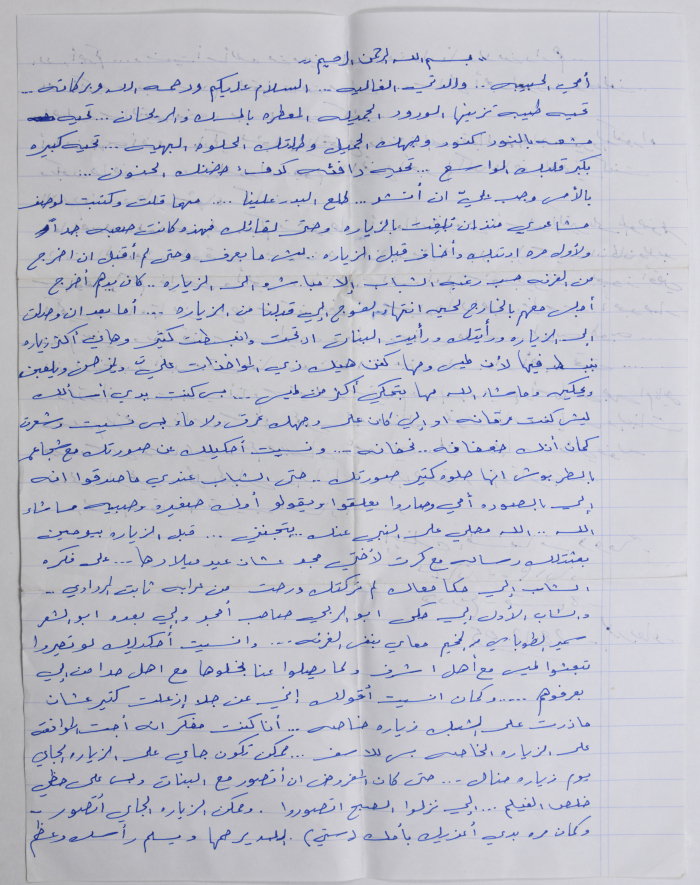 بسم الله الرحمن الرحيم
أمي الحبيبه .. والدتي الغاليه ... السلام عليكم ورحمة الله وبركاته ...
تحيه طيبه تزينها الورود الجميله المعطره بالمسك والريحان ... تحيه
مشعه بالنور كنور وجهك الجميل وطلتك الحلوه البهيه .... تحيه كبيره
بكبر قلبك الواسع ... تحيه دافئه كدفء حضنك الحنون ...
بالأمس وجب عليّ ان أنشد .. طلع البدر علينا .... مهما قلت وكتبت لوصف
مشاعري منذ ان تبلغت بالزياره وحتى لقائك فهذه كانت صعبه جداً
ولأول مره ارتبك وأخاف قبل الزياره .. ليش ما بعرف وحتى لم أقبل ان اخرج
من الغرفه حسب رغبة الشباب إلا مباشره الى الزياره .. كان بدهم أخرج
أجلس معهم بالخارج لحين انتهاء الفوج إلي قبلنا من الزياره .... أما بعد ان وصلت
الى الزياره ورأيتك ورأيت البنات ارتحت وانبسطت كتير وهاي أكثر زياره
بنبسط فيها لأن لميس ومها كفن حبك ذي المواخذات عليّ
وما شاء الله مها بتحكي أكثر من لميس ... بس كنت بدي أسألك
ليش كنت عرقانه او إلي كان على وجهك عرق ولا ماء بس نسيت وشعرت
كمان أنك ضعفانه .. نحفانه ... ونسيت أحكيلك عن صورتك مع
بالطربوش انها حلوه كتير صورتك .. حتى الشباب عندي ما صدقوا انه
إلي بالصوره أمي وصاروا يعلقوا ويقولو أمك صغيره وصبيه ما شاء
الله .. الله مصلي على النبي عنك .. بتجنني ... قبل الزياره بيومين
بعثتلك رساله مع كرت لأختي عشان عيد ميلادها ... على فكره
الشاب إلي حكا معك لم تركتك ورحت من عرابه ثابت الردادي ..
والشاب الأول إلي حكى ابو الربحي صاحب أحمد وإلي بعدو ابو الشعر
من المخيم معاي بنفس الغرفه .... وانسيت أحكيلك لو تصيروا
تبعثوا لميس مع أهل اشرف ولما يصلوا عنا بخلوها مع اهل حدا من إلي
بعرفوهم ..... وكمان انسيت أقولك إني عن جد ازعلت كتير عشان
ما ردت على الشبك زياره خاصه ... أنا كنت مفكر انه أجت الموافقه
على الزياره الخاصه بس للاسف ... ممكن تكون جاي على الزياره الجاي
يوم زيارة منال ... حتى كان المفروض ان أتصور مع البنات وبس على حظي
خلص الفيلم ... إلي نزلوا الصبح اتصوروا . وممكن الزياره الجاي أتصور ..
وكمان مره بدي أعزيك بأمك (ستي) .. الله يرحمها ويسلم راسك وعظم